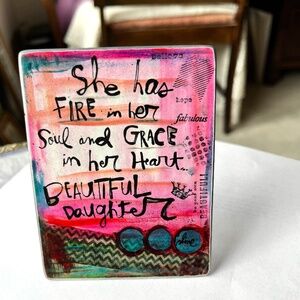 believe
She has
hope
FIRE in her
fabulous
Soul and GRACE
in her Heart
BEAUTIFUL
Daughter
BEAUTIFUL
she